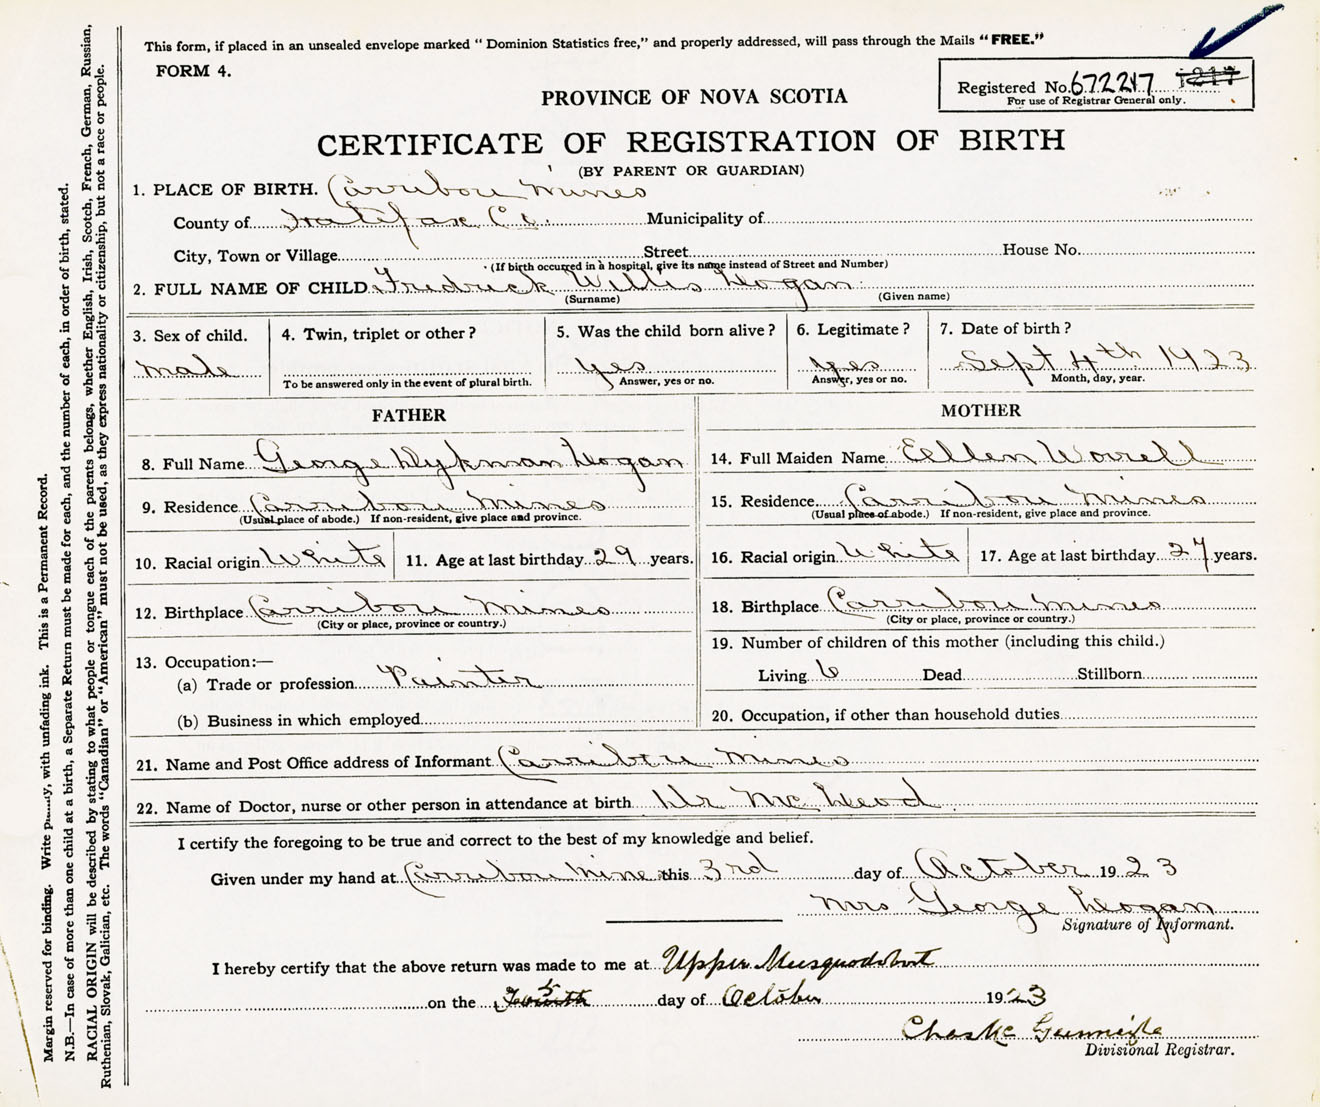 This form, if placed in an unsealed envelope marked "Dominion Statistics free," and properly addressed, will pass through the Mails "FREE."
FORM 4.
Registered No. 672217 1217
For use of Registrar General only.
PROVINCE OF NOVA SCOTIA
CERTIFICATE OF REGISTRATION OF BIRTH
(BY PARENT OR GUARDIAN)
1. PLACE OF BIRTH. Carribou Mines
County of Halifax Co. Municipality of
City, Town or Village Street House No.
(If birth occurred in a hospital, give its name instead of Street and Number)
2. FULL NAME OF CHILD Fredrick Willis Hogan
(Surname) (Given name)
3. Sex of child. 4. Twin, triplet or other? 5. Was the child born alive? 6. Legitimate? 7. Date of birth?
male yes yes Sept 4th 1923
To be answered only in the event of plural birth. Answer, yes or no. Answer, yes or no. Month, day, year.
FATHER MOTHER
8. Full Name George Dykman Hogan 14. Full Maiden Name Ellen Worrell
9. Residence Carribou Mines 15. Residence Carribou Mines
(Usual place of abode.) If non-resident, give place and province. (Usual place of abode.) If non-resident, give place and province.
10. Racial origin White 11. Age at last birthday 29 years. 16. Racial origin White 17. Age at last birthday 27 years.
12. Birthplace Carribou Mines 18. Birthplace Carribou Mines
(City or place, province or country.) (City or place, province or country.)
19. Number of children of this mother (including this child.)
13. Occupation:—
(a) Trade or profession Painter Living 6 Dead Stillborn
(b) Business in which employed 20. Occupation, if other than household duties
21. Name and Post Office address of Informant Carribou Mines
22. Name of Doctor, nurse or other person in attendance at birth Dr McLeod
I certify the foregoing to be true and correct to the best of my knowledge and belief.
Given under my hand at Carribou Mine this 3rd day of October 1923
Mrs George Hogan
Signature of Informant.
I hereby certify that the above return was made to me at Upper Musquodoboit
on the 5 Fourth day of October 1923
Chas
Divisional Registrar.
Margin reserved for binding. Write with unfading ink. This is a Permanent Record.
N.B.—In case of more than one child at birth, a Separate Return must be made for each, and the number of each, in order of birth, stated.
RACIAL ORIGIN will be described by stating to what people or tongue each of the parents belongs, whether English, Irish, Scotch, French, German, Russian,
Ruthenian, Slovak, Galician, etc. The words "Canadian" or "American" must not be used, as they express nationality or citizenship, but not a race or people.